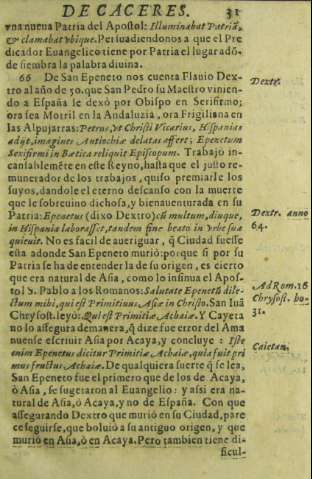 DE CACERES. 31
vna nueua Patria del Apostol: Illuminabat Patriã,
& clamabat vbique. Persuadiendonos a que el Pre
dicador Euangelico tiene por Patria el lugar adõ-
de siembra la palabra diuina.
66 De San Epeneto nos cuenta Flauio Dex-
tro al año de 50. que San Pedro su Maestro viniẽn-
do a España le dexò por Obispo en Serifirmo;
ora sea Motril en la Andaluzia, ora Frigiliana en
las Alpujarras: Petrus, vt Christi Vicarius, Hispanias
adijt, imagines Antiochiæ delatas affert; Epenetum
Sexifirmi in Bætica reliquit Episcopum. Trabajo in-
cansablemẽte en este Reyno, hasta que el justo re-
munerador de los trabajos, quiso premiarle los
suyos, dandole el eterno descanso con la muerte
que le sobreuino dichosa, y bienauenturada en su
Patria: Epenetus (dixo Dextro) cũ multum, diuque,
in Hispania laborasset, tandem fine beato in vrbe sua
quieuit. No es facil de aueriguar, q̃ Ciudad fuesse
esta adonde San Epeneto murió: porque si por su
Patria se ha de entender la de su origen, es cierto
que era natural de Asia, como lo insinua el Apos-
tol S. Pablo a los Romanos: Salutate Epenetũ dile-
ctum mihi, qui est Primitiuus Asiæ in Christo. San Iuã
Chrysost. leyò: Qui est Primitiæ Achaiæ. Y Cayeta
no lo assegura demanera, q̃ dize fue error del Ama
nuense escriuir Asia por Acaya, y concluye: Iste
enim Epenetus dicitur Primitiæ Achaiæ, quia fuit pri
mus fructus Achaiæ. De qualquiera suerte q̃ se lea,
San Epeneto fue el primero que de los de Acaya,
ò Asia, se sugetaron al Euangelio: y assi era na-
tural de Asia, ò Acaya, y no de España. Con que
assegurando Dextro que murió en su Ciudad, pare
ce seguirse, que boluió a su antiguo origen, y que
murió en Asia, ò en Acaya. Pero tambien tiene di-
ficul-
Dextr.
Dextr. anno
64.
Ad Rom. 16
Chrysost. ho-
31.
Caietan.